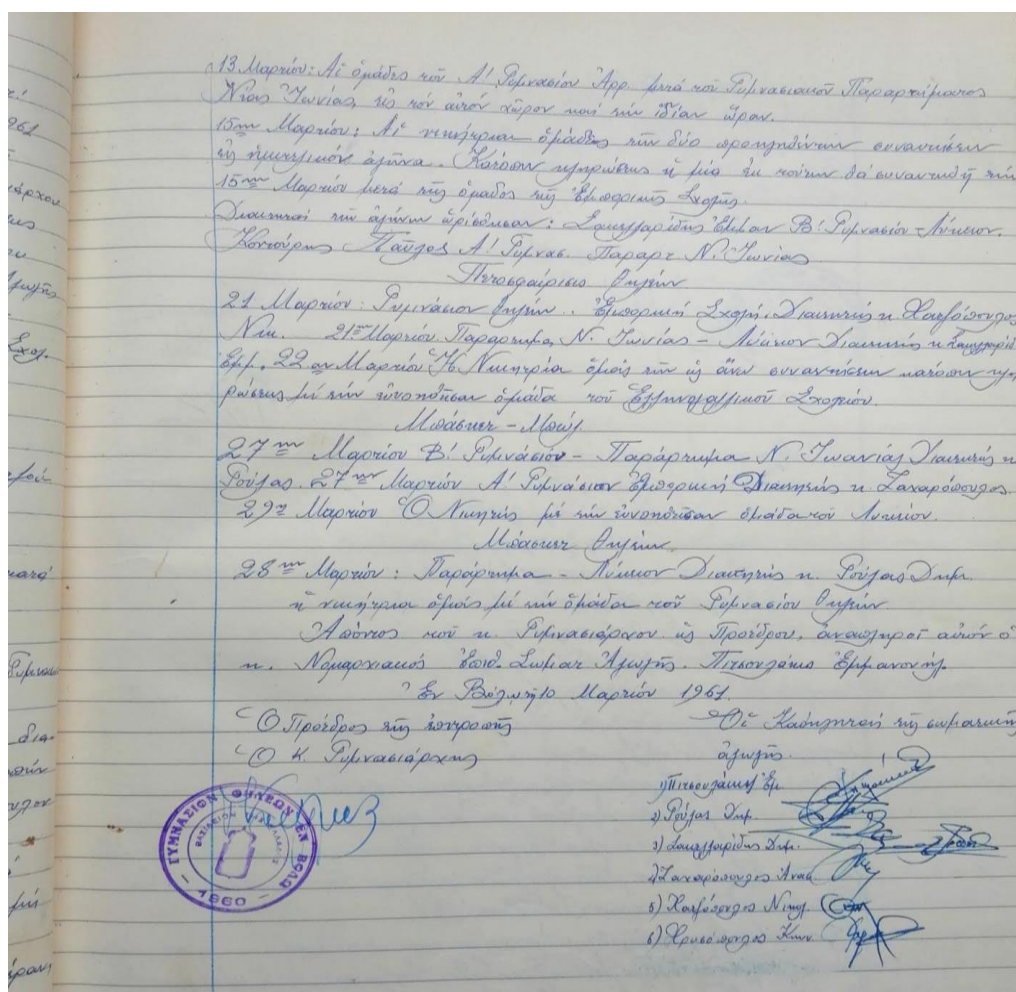 13 Μαρτίου: Αἱ ὁμάδες τοῦ Α! Γυμνασίου Ἀρρ. μετά τοῦ Γυμνασιακοῦ Παραρτήματος
Νέας Ἰωνίας εἰς τόν αὐτόν χῶρον καί τήν ἰδίαν ὥραν.
15ην Μαρτίου: Αἱ νικήτριαι ὁμάδες τῶν δύο προηγηθέντων συναντήσεων
εἰς ἡμιτελικόν ἀγῶνα. Κατόπιν κληρώσεως ἡ μία ἐκ τούτων θά συναντηθῇ τήν
15ην Μαρτίου μετά τῆς ὁμάδος τῆς Ἐμπορικῆς Σχολῆς.
Διαιτηταί τῶν ἀγώνων ὡρίσθησαν: Σακελλαρίδης Β! Γυμνασίου - Λύκειον.
Κοντούρης Παῦλος Α! Γυμνας. Παραρτ. Ν. Ἰωνίας
Πετοσφαίρισις Θηλέων
21 Μαρτίου: Γυμνάσιον Θηλέων - Ἐμπορική Σχολή, Διαιτητής κ. Χατζόπουλος
Νικ. 21ην Μαρτίου Παράρτημα Ν. Ἰωνίας - Λύκειον Διαιτητής κ. Σακελλαρίδ
Ἐμμ. 22αν Μαρτίου Ἡ Νικητρία ὁμάς τῶν ὡς ἄνω συναντήσεων κατόπιν κλη-
ρώσεως μέ τήν εὐνοηθῆσαν ὁμάδα τοῦ Ἑλληνογαλλικοῦ Σχολείου.
Μπάσκετ - Μπώλ
27ην Μαρτίου Β! Γυμνάσιον - Παράρτημα Ν. Ἰωανίας Διαιτητής κ.
Ρούλας. 27ην Μαρτίου Α! Γυμνάσιον Ἐμπορική Διαιτητής κ. Ζαχαρόπουλος.
29η Μαρτίου Ὁ Νικητής μέ τήν εὐνοηθεῖσαν ὁμάδα τοῦ Λυκείου.
Μπάσκετ Θηλέων.
28ην Μαρτίου: Παράρτημα - Λύκειον Διαιτητής κ. Ρούλας Δημ.
ἡ νικήτρια ὁμάς μέ τήν ὁμάδα τοῦ Γυμνασίου Θηλέων.
Ἀπόντος τοῦ κ. Γυμνασιάρχου ὡς Προέδρου, ἀναπληροῖ αὐτόν ὁ
κ. Νομαρχιακός Ἐπιθ. Σωματ. Ἀγωγῆς. Πιτσουλάκις Ἐμμανουήλ.
Ἐν Βόλῳ τῇ 10 Μαρτίου 1961.
Ὁ Πρόεδρος τῆς ἐπιτροπῆς
Οἱ Καθηγηταί τῆς σωματικῆς
Ὁ Κ. Γυμνασιάρχης
ἀγωγῆς.
1) Πιτσουλάκις Ἐμ.
2) Ρούλας Δημ.
3) Σακελλαρίδης Δημ.
4) Ζαχαρόπουλος Ἀνασ.
5) Χατζόπουλος Νικολ.
6) Χρυσόπουλος Κων.
ΓΥΜΝΑΣΙΟΝ ΘΗΛΕΩΝ ΕΝ ΒΟΛΩ
ΒΑΣΙΛΕΙΟΝ ΤΗΣ ΕΛΛΑΔΟΣ
- 1960 -